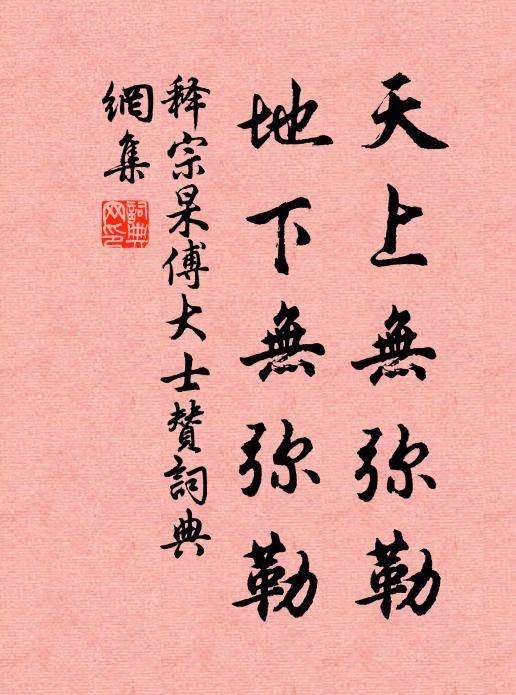 天上無弥勒
地下無弥勒
释宗杲傅大士赞詞典
網集
詞典
网印